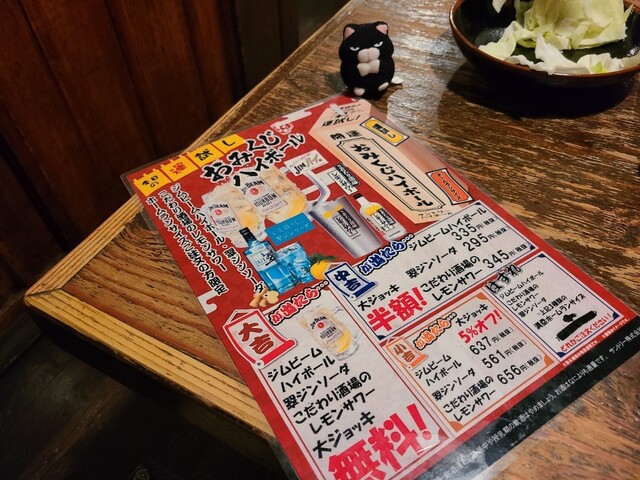 初の運試し
おみくじ
ハイボール
ジムビームハイボール・翠ジンソーダ
こだわり酒場のレモンサワー
ホームランサイズご注文の方限定
運試し!
開運
おみくじハイボール
大吉!
が出たら…
ジムビーム
ハイボール
翠ジンソーダ
こだわり酒場の
レモンサワー
大ジョッキ
無料!
中吉
が出たら…
大ジョッキ
半額!
ジムビームハイボール
335円(税抜)
翠ジンソーダ
295円(税抜)
こだわり酒場の
レモンサワー 345円(税抜)
小吉
が出たら…
大ジョッキ
5%オフ!
ジムビーム
ハイボール 637円(税抜)
翠ジンソーダ 561円(税抜)
こだわり酒場の
レモンサワー 656円(税抜)
はずれ
ジムビームハイボール
こだわり酒場の
レモンサワー
翠ジンソーダ
上記3種類の
満腹ホームランサイズ
どれかご注文ください!